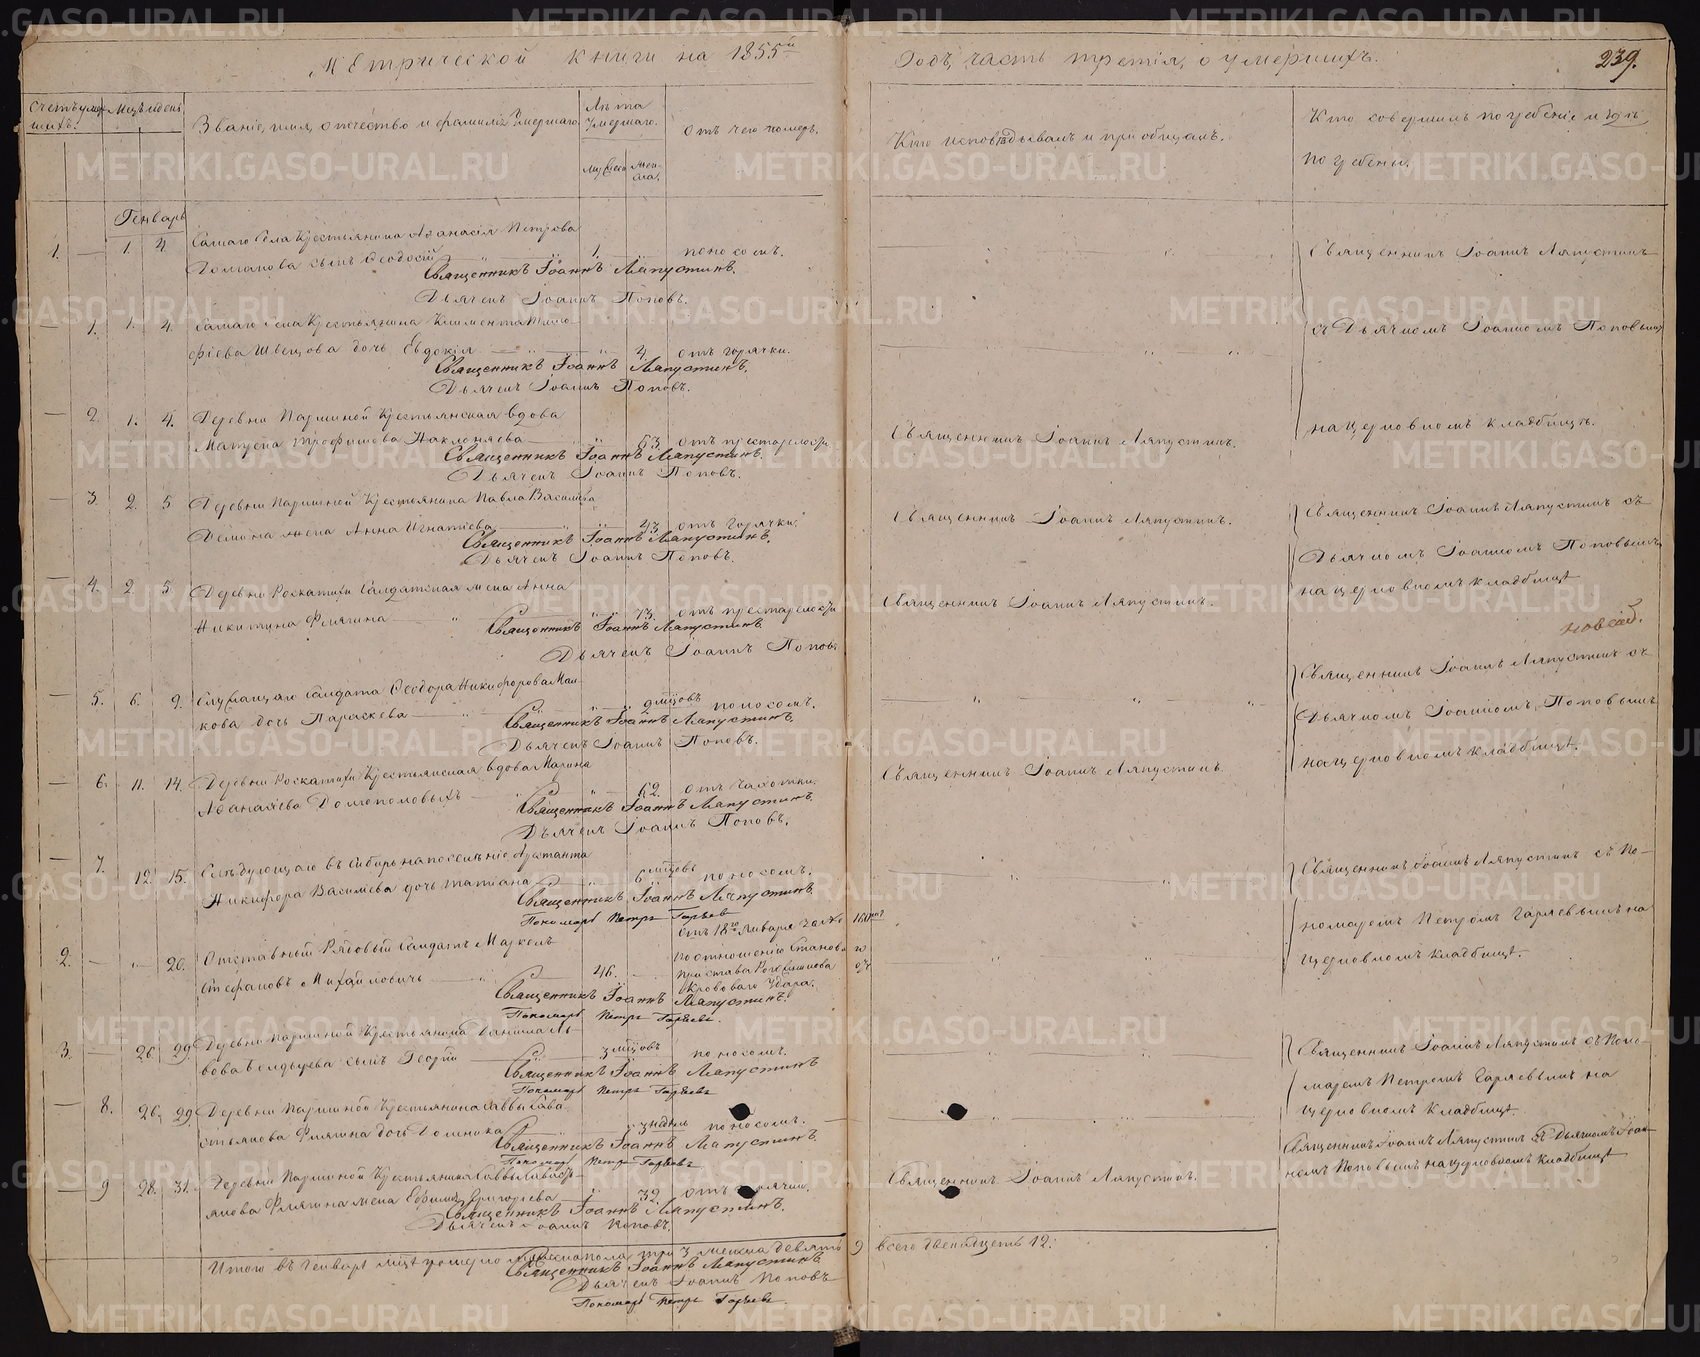 Метрической книги на 1855й
Годъ, часть третія, о умершихъ.
239.
Счетъ умер-
шихъ.
Мѣц. и день
Званіе, имя, отчество и фамилія Умершаго.
Лѣта
Умершаго.
Мужеска
Жен-
ска.
Отъ чего померъ.
Кто исповѣдывалъ и пріобщалъ.
Кто совершилъ погребеніе и гдѣ
погребены.
Генварь
1. 1. 4. Самаго Села Крестьянина Аѳанасія Петрова
сынъ Ѳеодосій 1. поносомъ.
Священникъ Іоаннъ Ляпустинъ
Священникъ Іоаннъ Ляпустинъ.
Дьячекъ Іоаннъ Поповъ.
1. 1. 4. Самаго Села Крестьянина Климента Тимо-
фіева Швецова дочь Евдокія 4. отъ горячки.
съ Дьячкомъ Іоанномъ Поповымъ
Священникъ Іоаннъ Ляпустинъ.
Дьячекъ Іоаннъ Поповъ.
2. 1. 4. Деревни Паршиной Крестьянская вдова
на церковномъ кладбищѣ.
Трофимова 63 отъ престарелости
Священникъ Іоаннъ Ляпустинъ.
Священникъ Іоаннъ Ляпустинъ.
Дьячекъ Іоаннъ Поповъ.
3. 2. 5 Деревни Паршиной Крестьянина Павла Василіева
Демина жена Анна Игнатіева 43 отъ горячки.
Священникъ Іоаннъ Ляпустинъ.
Священникъ Іоаннъ Ляпустинъ съ
Священникъ Іоаннъ Ляпустинъ.
Дьячекъ Іоаннъ Поповъ.
Дьячкомъ Іоанномъ Поповымъ
4. 2 5 Деревни Роскатихи Салдатская жена Анна
на церковномъ кладбищѣ
Никитина Флягина 73. отъ престарелости
Священникъ Іоаннъ Ляпустинъ.
Священникъ Іоаннъ Ляпустинъ
Дьячекъ Іоаннъ Поповъ
5. 6. 9. Служащаго салдата Ѳеодора Никифорова Мал-
кова дочь Параскева 2 мцовъ поносомъ.
Священникъ Іоаннъ Ляпустинъ съ
Священникъ Іоаннъ Ляпустинъ.
Дьячкомъ Іоанномъ Поповымъ
Дьячекъ Іоаннъ Поповъ.
на церковномъ кладбищѣ.
6. 11. 14. Деревни Роскатихи Крестьянская вдова Марина
Аѳанасіева Долгополовыхъ 62. отъ чахотки.
Священникъ Іоаннъ Ляпустинъ.
Священникъ Іоаннъ Ляпустинъ.
Дьячекъ Іоаннъ Поповъ.
7. 12. 15. Слѣдующаго въ Сибирь на поселеніе Арестанта
Никифора Василіева дочь Татіана 6 мцовъ поносомъ.
Священникъ Іоаннъ Ляпустинъ съ По-
Священникъ Іоаннъ Ляпустинъ
Пономарь Петръ Гаряевъ
номаремъ Петромъ Гаряевымъ на
церковномъ кладбищѣ.
2. 20. Отставный Рядовый Салдатъ Маркелъ
Стефановъ Михайловичь 46.
отъ 18го Января за № 160
по отношенію Станова го
пристава
Кроваваго Удара.
Священникъ Іоаннъ Ляпустинъ.
Пономарь Петръ Гаряевъ.
3. 26 29. Деревни Паршиной Крестьянина Даніила Ль-
вова сынъ Георгій 3 мцовъ поносомъ.
Священникъ Іоаннъ Ляпустинъ съ Поно-
Священникъ Іоаннъ Ляпустинъ
Пономарь Петръ Гаряевъ
маремъ Петромъ Гаряевымъ на
церковномъ кладбищѣ.
8. 26. 29. Деревни Паршиной Крестьянина Саввы Сева-
стьянова Флягина дочь Домника 3 недель поносомъ.
Священникъ Іоаннъ Ляпустинъ
Пономарь Петръ Гаряевъ
Священникъ Іоаннъ Ляпустинъ съ Дьячкомъ Іоан-
номъ Поповымъ на церковномъ кладбищѣ
9 28. 31. Деревни Паршиной Крестьянина Саввы Севасть-
янова Флягина жена Григорьева 32. отъ горячки.
Священникъ Іоаннъ Ляпустинъ.
Священникъ Іоаннъ Ляпустинъ.
Дьячекъ Іоаннъ Поповъ.
Итого въ Генварѣ мцѣ умерло мужеска пола три 3 женска девять 9 всего двенадцеть 12.
Священникъ Іоаннъ Ляпустинъ
Дьячекъ Іоаннъ Поповъ
Пономарь Петръ Гаряевъ
METRIKI.GASO-URAL.RU